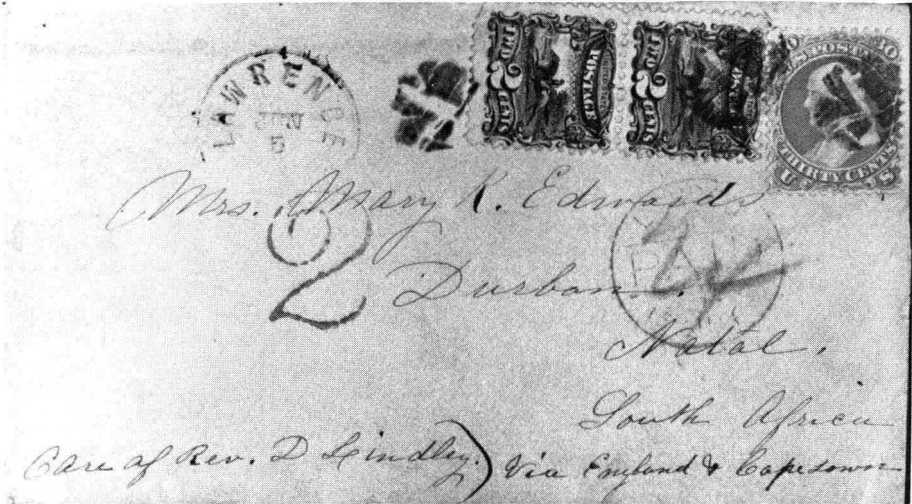 LAWRENCE
JUN
5
POSTAGE
TWO 2 CENTS
POSTAGE
TWO 2 CENTS
30
U.S. POST
THIRTY CENTS
U S
Mrs. Mary K. Edwards
2
PAID
24
Durban.
Natal.
South Africa
Care of Rev. D Lindley.) Via England & Capetown